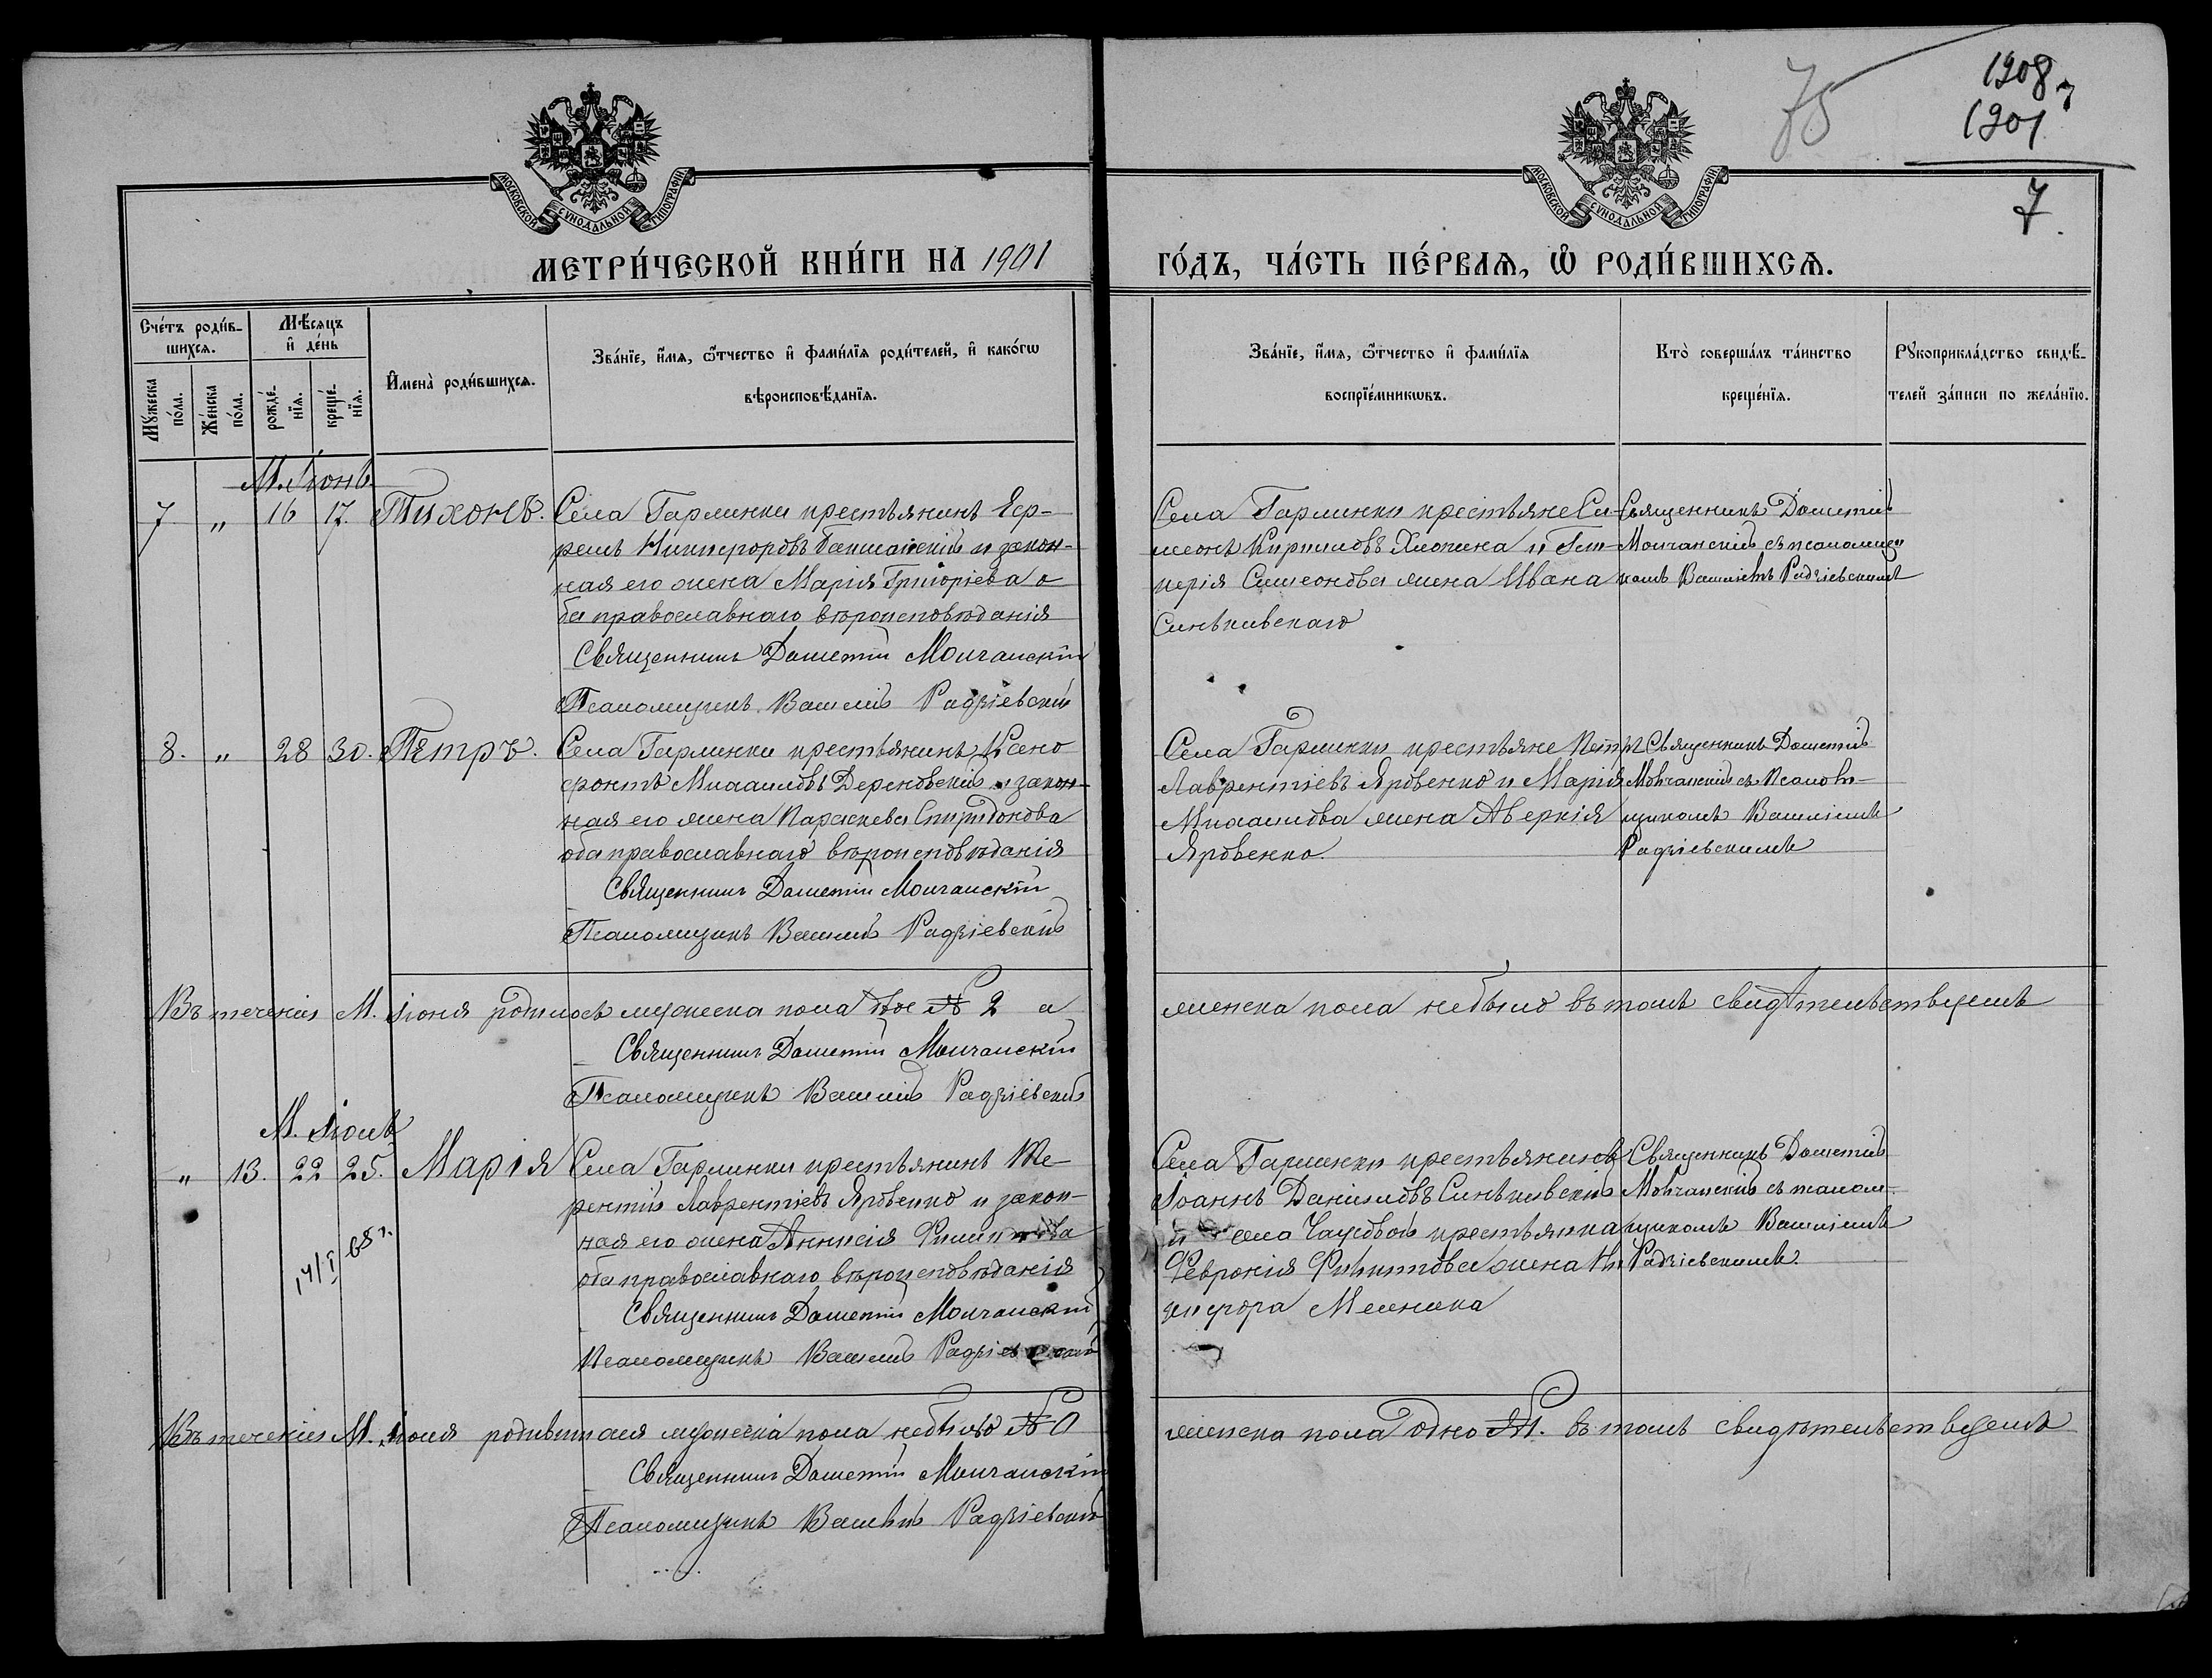 75
1908
1901
7
7.
МОСКОВСКОЙ СУНОДАЛЬНОЙ ТИПОГРАФІИ
МОСКОВСКОЙ СУНОДАЛЬНОЙ ТИПОГРАФІИ
МЕТРИ́ЧЕСКОЙ КНИ́ГИ НА 1901
ГО́ДЪ, ЧА́СТЬ ПЕ́РВАѦ, Ѽ РОДИ́ВШИХСѦ.
Сче́тъ роди́в-
шихсѧ.
Мѣ́сѧцъ
и҆ де́нь
Мꙋ́жеска
по́ла.
Же́нска
по́ла.
рожде́-
нїѧ.
креще́-
нїѧ.
И҆мена̀ роди́вшихсѧ.
Зва́нїе, и҆́мѧ, ѻ҆́тчество и҆ фами́лїѧ роди́телей, и҆ како́гѡ
вѣроисповѣ́данїѧ.
Зва́нїе, и҆́мѧ, ѻ҆́тчество и҆ фами́лїѧ
воспрїе́мникѡвъ.
Кто̀ соверша́лъ та́инство
креще́нїѧ.
Рꙋкоприкла́дство свидѣ́-
телей за́писи по жела́нїю.
М. Іюнь
7 " 16 17. Тихонъ.
Села Гарминки крестьянинъ Еф-
ремъ Никифоровъ и закон-
ная его жена Марія Григоріева о
ба православнаго вѣроисповѣданія
Священникъ Дометій Молчанскій
Псаломщикъ Василій Радзіевскій
Села Гарминки крестьяне Си-
меонъ Кирилловъ и Гли-
керія Симеонова жена Ивана
Синѣкивскаго
Священникъ Дометій
Молчанскій съ псаломщи
комъ Василіемъ Радзіевскимъ
8. " 28 30. Петръ.
Села Гарминки крестьянинъ Ксено
фонтъ Михаиловъ Дереновскій и закон-
ная его жена Параскева Спиридонова
оба православнаго вѣроисповѣданія
Священникъ Дометій Молчанскій
Псаломщикъ Василій Радзіевскій
Села Гарминки крестьяне Петръ
Лаврентіевъ Яровенко и Марія
Михаилова жена Аверкія
Яровенко.
Священникъ Дометій
Молчанскій съ Псалом-
щикомъ Василіемъ
Радзіевскимъ
Въ теченіи М. Іюня родилось мужеска пола двое № 2 а
женска пола небыло въ томъ свидѣтельствуемъ
Священникъ Дометій Молчанскій
Псаломщикъ Василій Радзіевскій
М. Іюль
" 13. 22 25. Марія
14/I 68 г.
Села Гарминки крестьянинъ Те-
рентій Лаврентіевъ Яровенко и закон-
ная его жена Аннисія Филиппова
оба православнаго вѣроисповѣданія
Священникъ Дометій Молчанскій
Псаломщикъ Василій Радзіевскій
Села Гарминки крестьянинъ
Іоаннъ Даніиловъ Синѣкивскій
и села Чаусовой крестьянка
Феврокія Филиппова жена Ни
кифора Мельника
Священникъ Дометій
Молчанскій съ псалом-
щикомъ Василіемъ
Радзіевскимъ.
Въ теченіи М. Іюля родившихся мужеска пола небыло № 0
женска пола одно №1. въ томъ свидѣтельствуемъ
Священникъ Дометій Молчанскій
Псаломщикъ Василій Радзіевскій